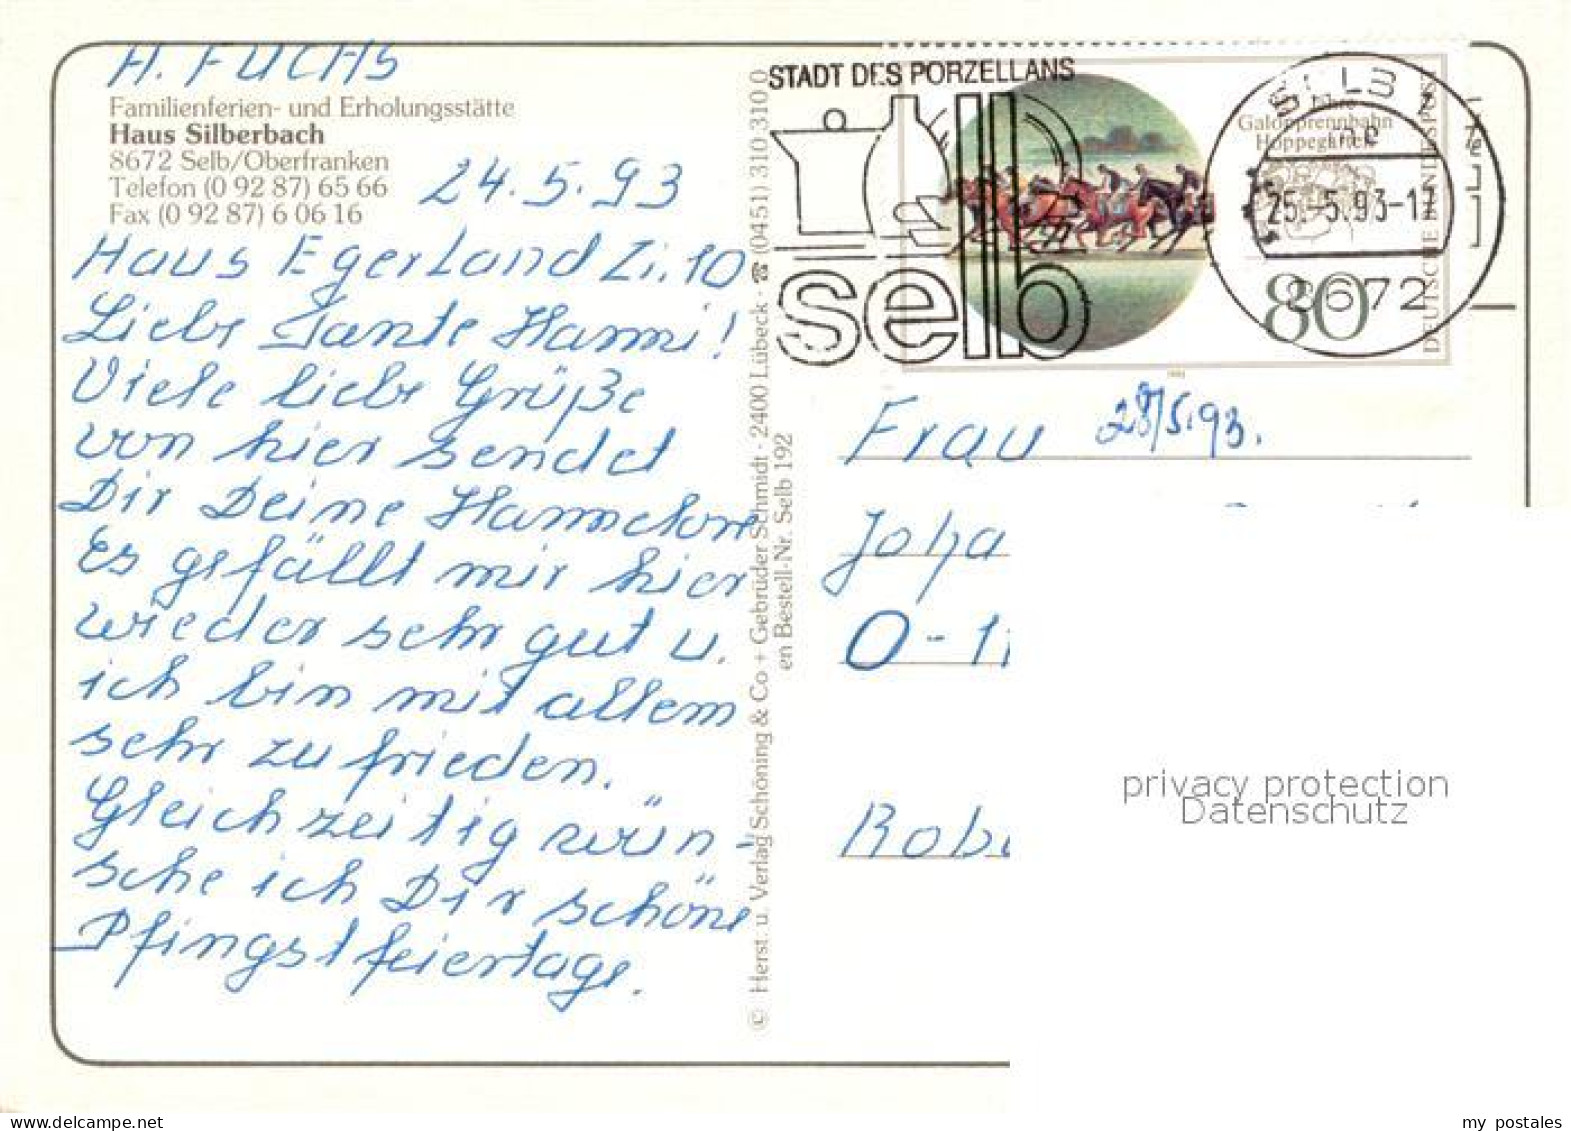 H. FUCHS
Familienferien- und Erholungsstätte
Haus Silberbach
8672 Selb/Oberfranken
Telefon (0 92 87) 65 66
Fax (0 92 87) 6 06 16
24.5.93
Haus Egerland Zi. 10
Liebe Tante Hanni!
Viele liebe Grüße
von hier sendet
Dir Deine Hannelore
Es gefällt mir hier
wieder sehr gut u.
ich bin mit allem
sehr zufrieden.
Gleichzeitig wün-
sche ich Dir schöne
Pfingstfeiertage.
© Herst. u. Verlag Schöning & Co + Gebrüder Schmidt · 2400 Lübeck · ☎ (0451) 310 310 0
en Bestell-Nr. Selb 192
STADT DES PORZELLANS
selb
Galopprennbahn
Hoppegarten
DEUTSCHE BUNDESPOST
80
SELB
25.-5.93-17
8672
Frau 28/5.93.
Joha
O-11
Rob
privacy protection
Datenschutz
my postales